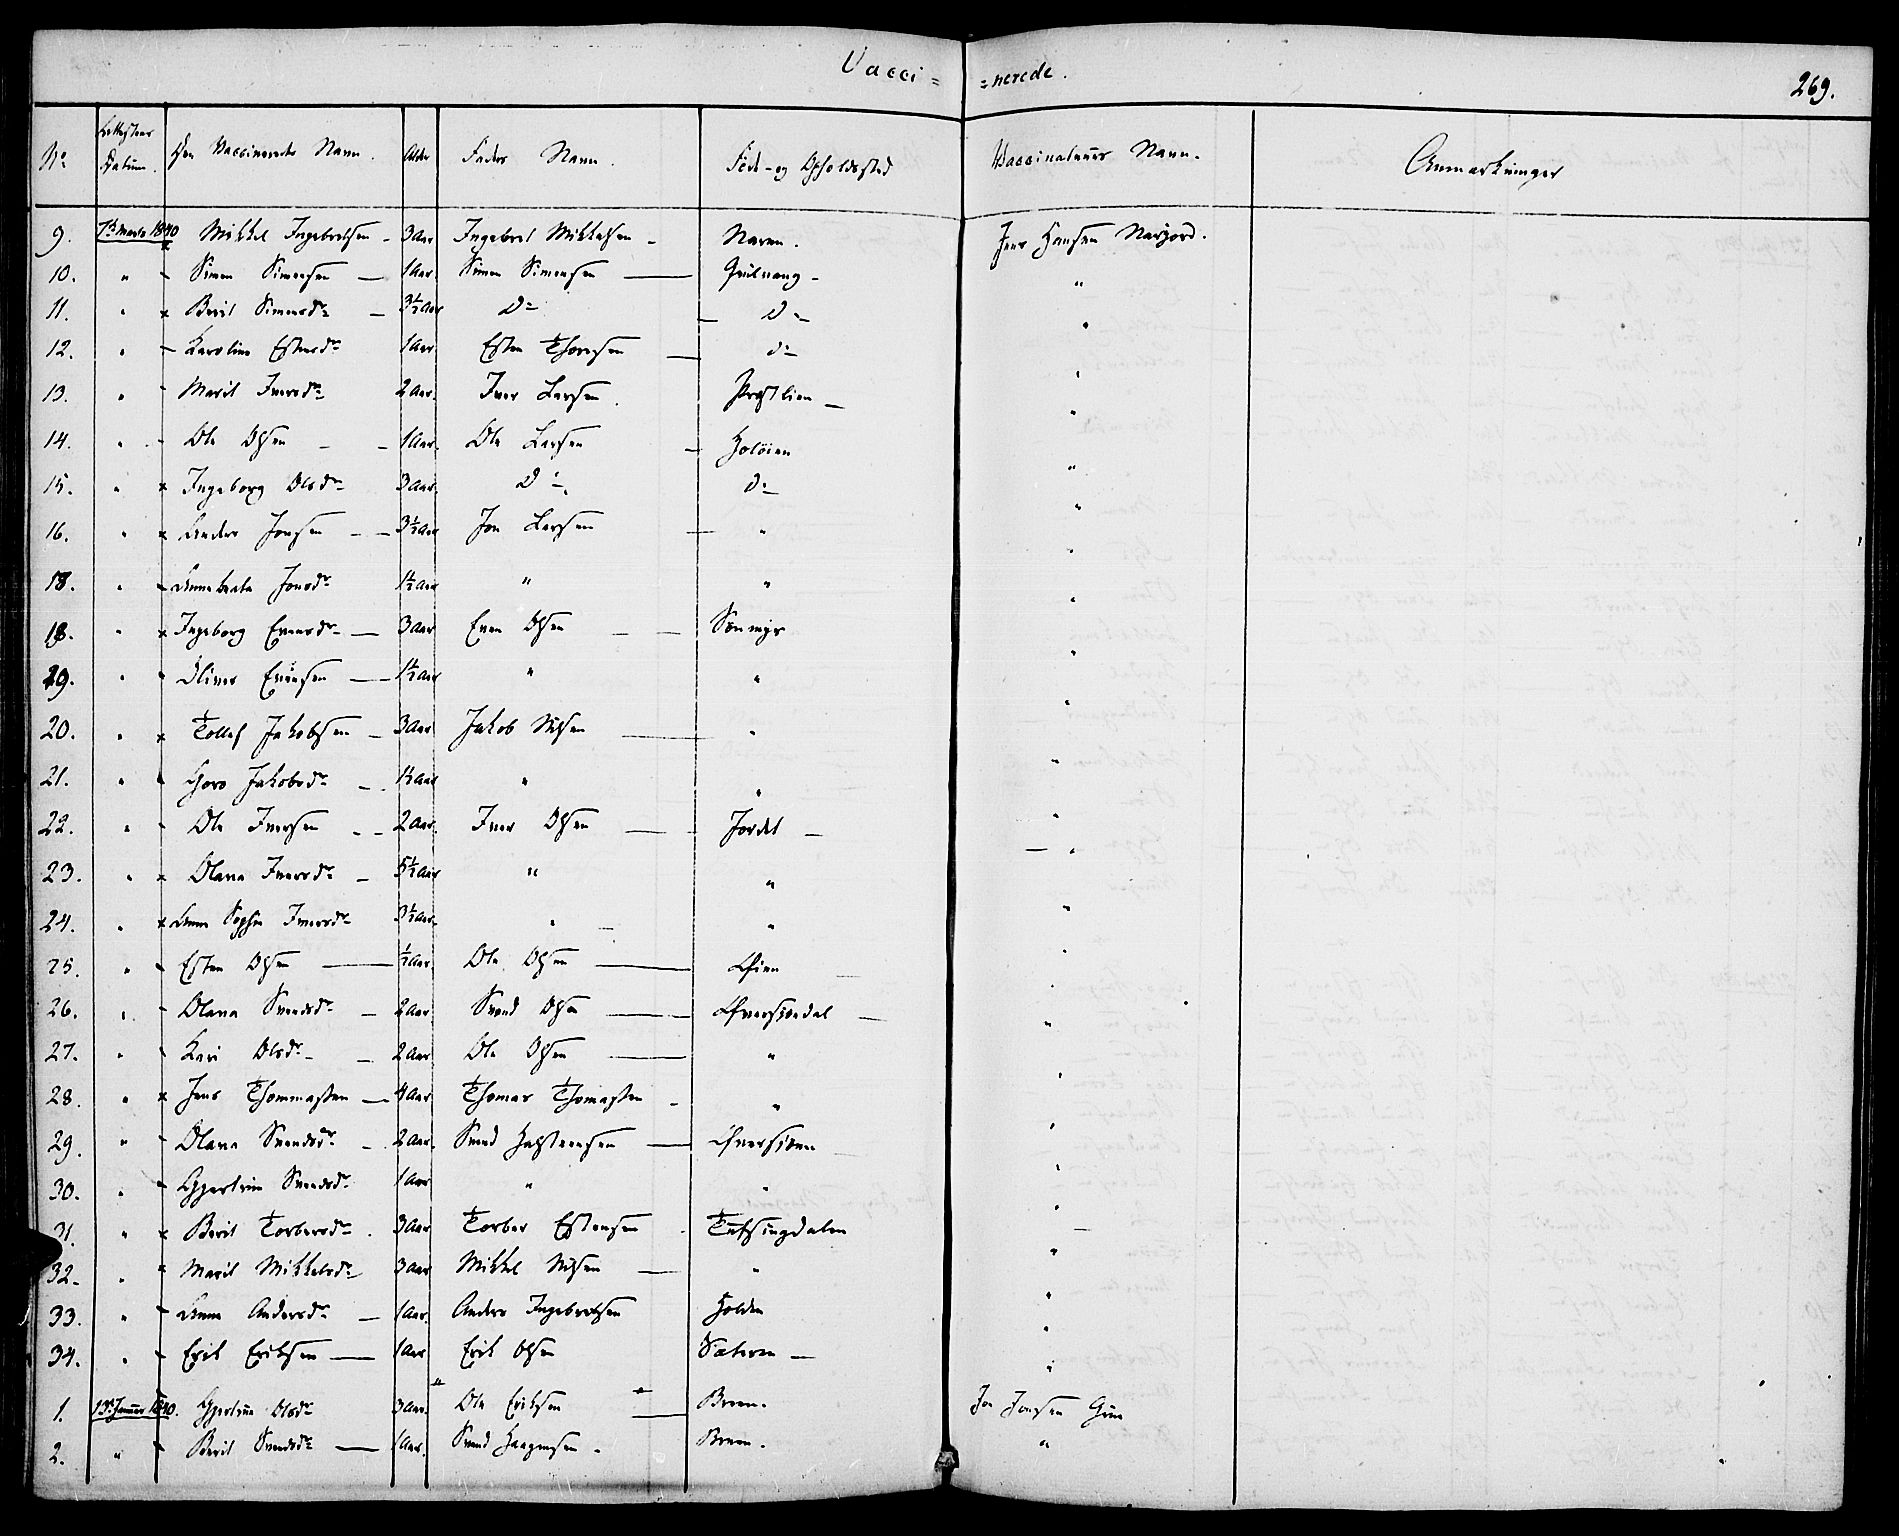 Vacci= =nerede. 269.
No Attestens Datum. Den Vaccineredes Navn. Alder Faders Navn. Føde- og Opholdssted Vaccinateurs Navn. Anmærkninger
9. 7de Marts 1840 x Mikkel Ingebretsen - 3 Aar Ingebret Mikkelsen - Narven. Jens Hansen Narjord.
10. " - Simen Simensen - 1 Aar. Simen Simensen -
11. " x Berit Simensdr - 3½ Aar Do - Do "
12. " - Karoline Estensdr 1 Aar Esten Thoresen - do "
13. " - Marit Iversdr 2 Aar. Iver Larsen. Præstlien - "
14. " - Ole Olsen - 1 Aar. Ole Larsen - Holøien "
15. " x Ingeborg Olsdr 3 Aar. Do. Do "
16. " x Anders Jonsen - 3½ Aar Jon Larsen - " "
18. " - Anne Beata Jonsdr 1½ Aar " " "
18. " x Ingeborg Evensdr - 3 Aar Even Olsen - Sønmyr "
19. " - Oliver Evensen - 1½ Aar " " "
20. " x Tollef Jakobsen - 3 Aar Jakob Nilsen - " "
21. " - Goro Jakobsdr - 1½ Aar " " "
22. " - Ole Iversen - 2 Aar. Iver Olsen - Jordet - "
23. " x Olava Iversdr - 5½ Aar " " "
24. " x Anne Sophie Iversdr 3½ Aar. " " "
25. " - Esten Olsen - ½ Aar. Ole Olsen - Øien "
26. " - Olava Svendsdr - 2 Aar. Svend Olsen - Øversjødal - "
27. " - Kari Olsdr - 2 Aar Ole Olsen - " "
28. " x Jens Thommassen - 4 Aar Thomas Thomassen - " "
29. " - Olava Svendsdr - 2 Aar. Svend Halstensen - Øversjøen "
30. " - Gjertrue Svendsdr 1 Aar " " "
31. " x Berit Torbersdr. 3 Aar Torber Estensen - Tufsingdalen "
32. " x Marit Mikkelsdr 3 Aar Mikkel Nilsen - " "
33. " - Anne Andersdr - 1 Aar. Anders Ingebretsen Holden "
34. " - Erik Eriksen - 1 Aar Erik Olsen Sæteren - "
1. 13de Januar 1840. Gjertrue Olsdr 3 Aar. Ole Eriksen - Breen. Jon Jonsen
2. " - Berit Svendsdr - 1 Aar. Svend Haagensen - Breen. "